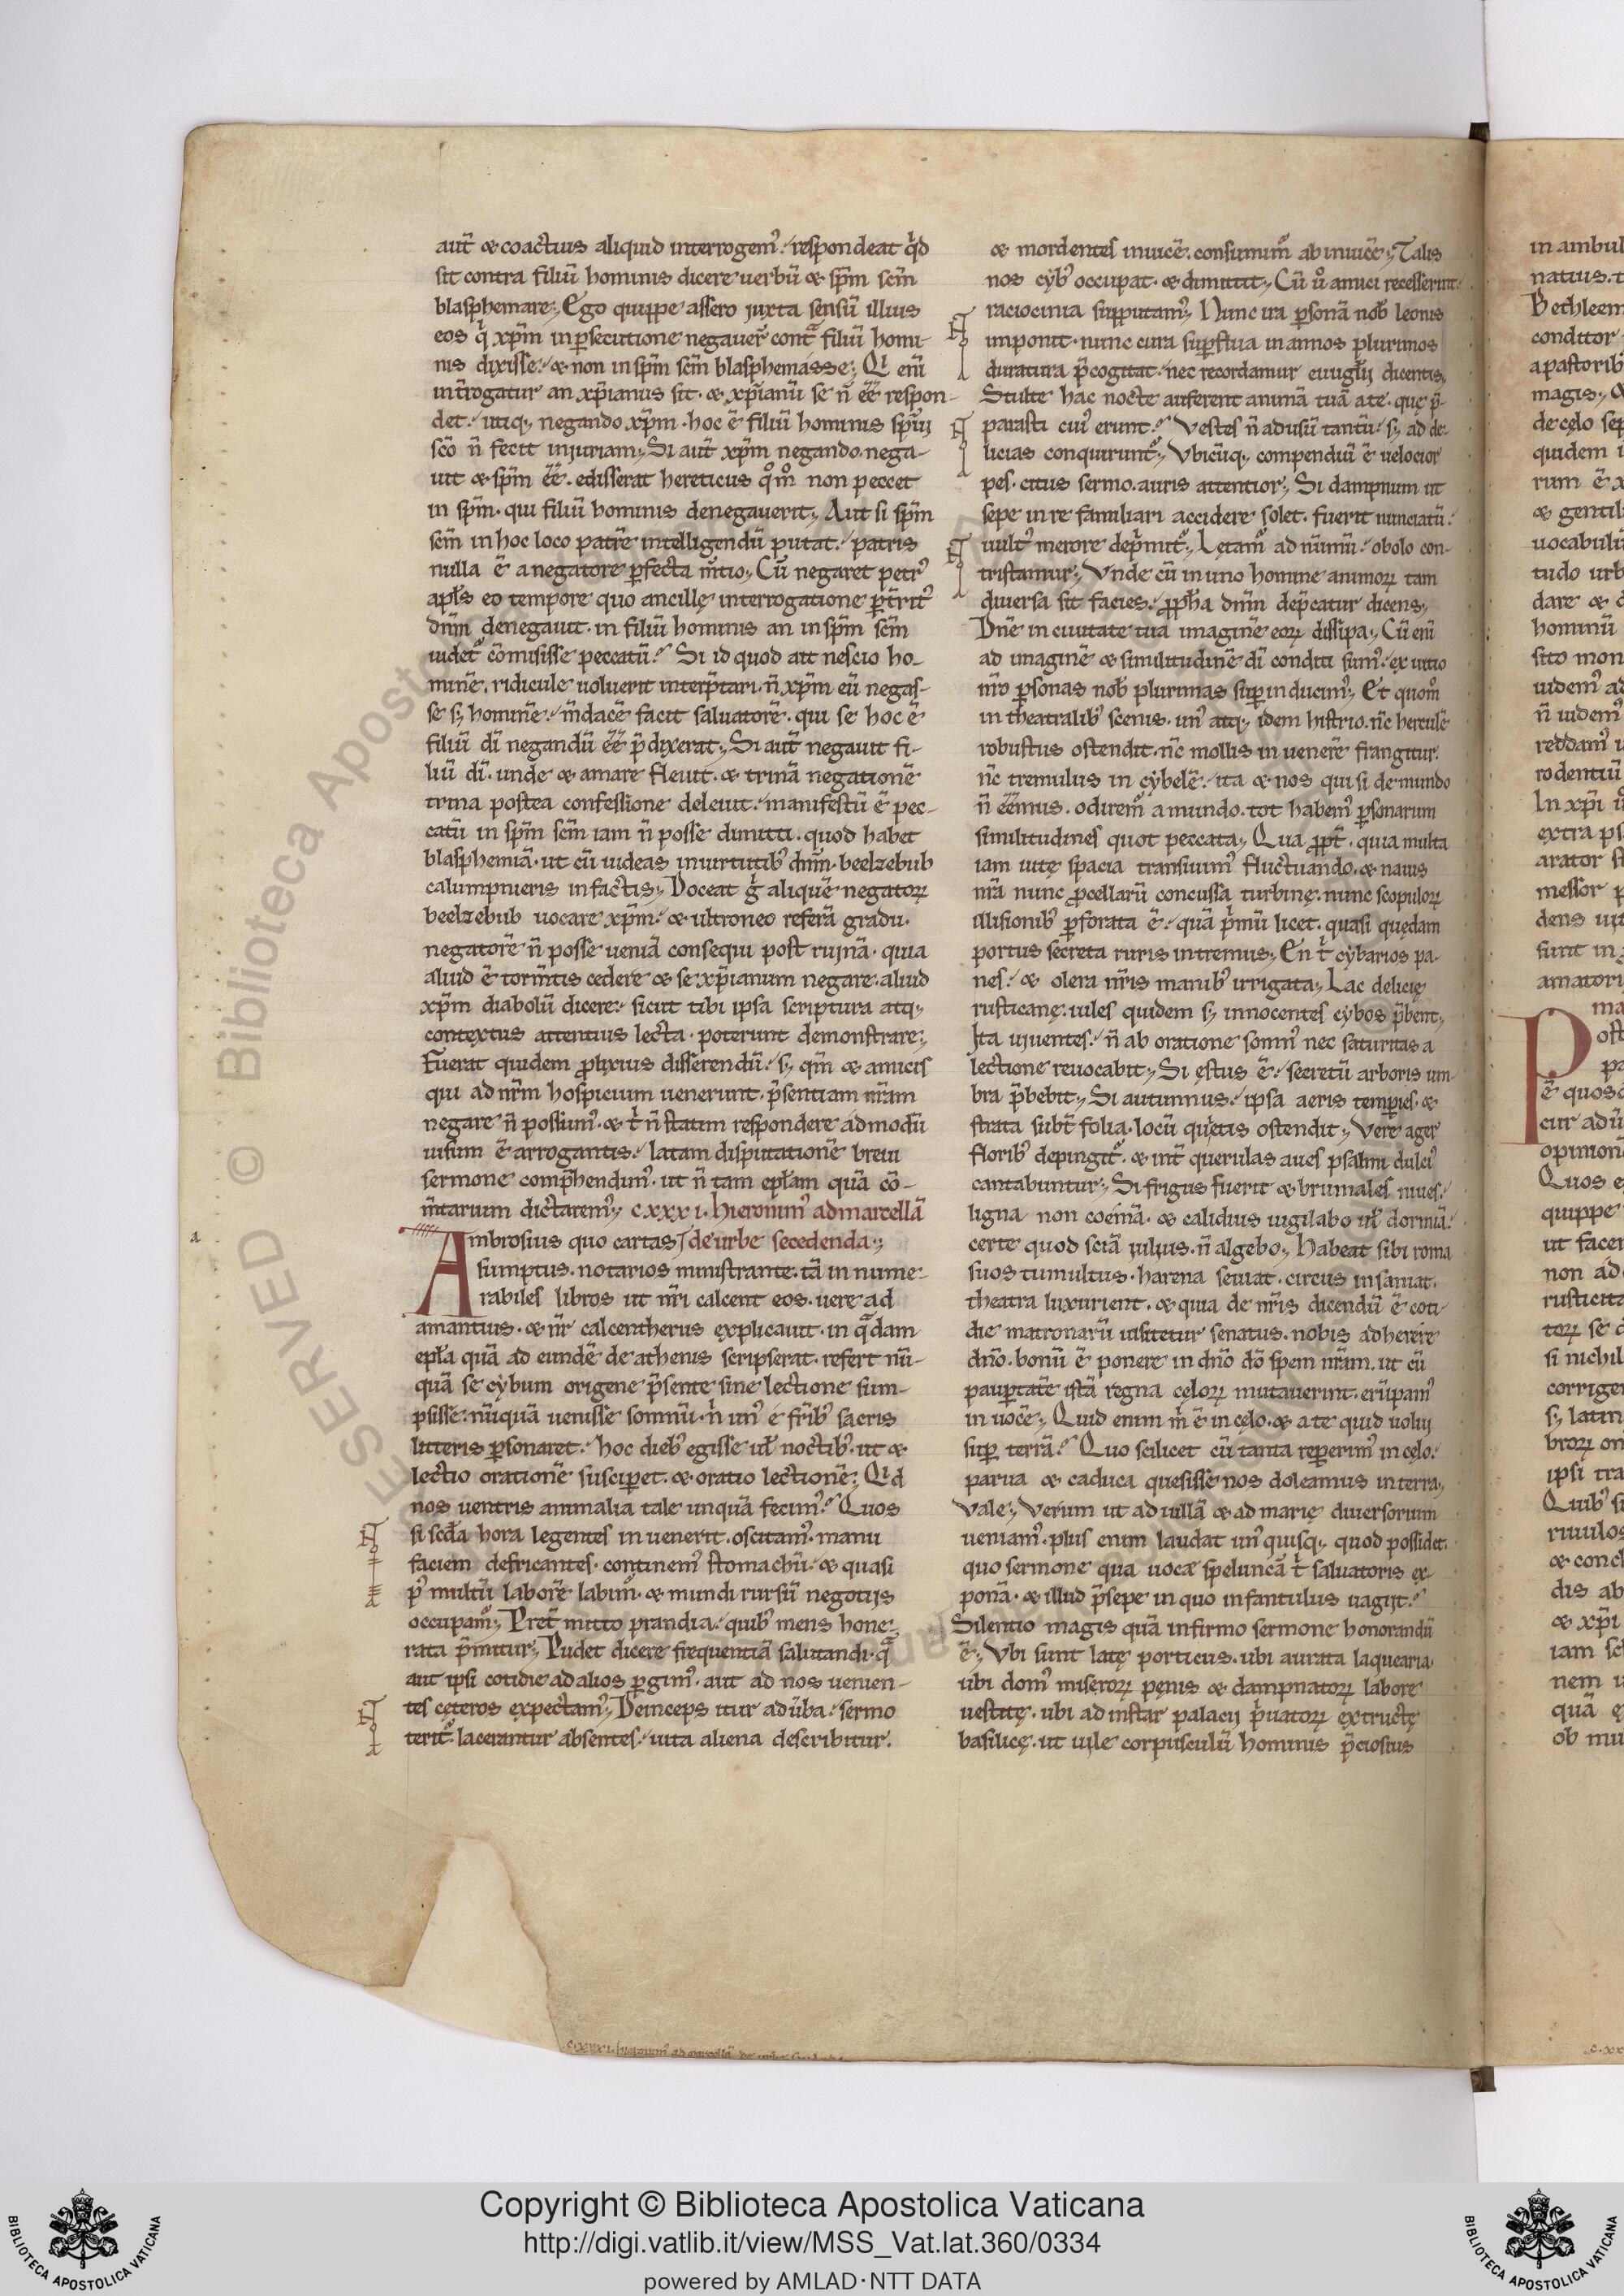 aut̄ & coactius aliquid interrogem᾽. respondeat q̇d
sit contra filiū hominis dicere uerbū & sp̄m sc̄m
blasphemare; Ego quippe assero juxta sensū illius
eos q̇ xp̄m in ꝑsecutione negauer̄ cont̄ filiū homi-
nis dixisse. & non in sp̄m sc̄m blasphemasse; Qi eni̅
int̄rogatur an xp̄ianus sit. & xp̄ianū se n̄ ēē respon-
det. utiq; negando xp̄m. hoc ē filiū hominis sp̄iij
sc̄o n̄ fecit injuriam; Si aut̄ xp̄m negando. nega-
uit & sp̄m ēē. edisserat hereticus qͦmͦ non peccet
in sp̄m. qui filiū hominis denegauerit; Aut si sp̄m
sc̄m in hoc loco patrē intelligendū putat. patris
nulla ē a negatore ꝑfecta m̄tio; Cū negaret petr᾽
apl̄s eo tempore quo ancillę interrogatione ꝑt̄rit᾽
dn̄m denegauit. in filiū hominis an in sp̄m sc̄m
uidet᾽ cōmisisse peccatū? Si id quod ait nescio ho-
minē. ridicule uoluerit interp̄tari. n̄ xp̄m eū negas-
se s; hominē. m̄dacē facit saluatorē. qui se hoc ē
filiū dī negandū ēē p̄dixerat; Si aut̄ negauit fi-
liū dī. unde & amare fleuit. & trinā negationē
trina postea confessione deleuit. manifestū ē pec-
catū in sp̄m sc̄m iam n̄ posse dimitti. quod habet
blasphemiā. ut cū uideas in uirtutib᾽ dn̄m. beelzebub
calumpnieris in factis; Doceat ġ aliquē negatorꝝ
beelzebub uocare xp̄m. & ultroneo referā gradu.
negatorē n̄ posse ueniā consequi post rujnā. quia
aliud ē torm̄tis cedere & se xp̄ianum negare. aliud
xp̄m diabolū dicere. sicut tibi ipsa scriptura atq;
contextus attentius lecta. poterunt demonstrare;
Fuerat quidem ꝓlixius disserendū. s; qm̄ & amicis
qui ad nr̄m hospicium uenerunt. p̄sentiam nr̄am
negare n̄ possum᾽. & t̄ n̄ statim respondere admodū
uisum ē arrogantis. latam disputationē breui
sermone comp̄hendim᾽. ut n̄ tam epl̄am quā cō-
m̄tarium dictarem᾽; cxxxi. hieronim᾽ ad marcellā
Ambrosius quo cartas de urbe secedenda;
sumptus. notarios ministrante. tā in nume-
rabiles libros ut nr̄i calcent eos. uere ad
amantius. & nr̄ calcentherus explicauit. in q̄dam
epl̄a quā ad eundē de athenis scripserat. refert nū-
quā se cybum origene p̄sente sine lectione sum-
psisse. nūquā uenisse somnū. n̄ un᾽ e fr̄ib᾽ sacris
litteris ꝑsonaret. hoc dieb᾽ egisse ul̄ noctib᾽. ut &
lectio orationē susciꝑet. & oratio lectionē; Qid
nos uentris animalia tale unquā fecim᾽? Quos
si scd̄a hora legentes inuenerit. oscitam᾽. manu
faciem defricantes. continem᾽ stomachū. & quasi
p᾽ multū laborē labim᾽. & mundi rursū negotijs
occupam᾽; Pret̄mitto prandia. quib᾽ mens hone-
rata p̄mitur; Pudet dicere frequentiā salutandi. q̄
aut ipsi cotidie ad alios ꝑgim᾽. aut ad nos uenien-
tes cęteros expectam᾽; Deinceps itur ad u̅ba. sermo
terit᾽. lacerantur absentes. uita aliena describitur.
& mordentes inuicē. consumim᾽ ab inuicē; Talis
nos cyb᾽ occupat. & dimittit; Cū uͦ amici recesserint.
raciocinia supputam᾽; Nunc ira ꝑsonā nob̄ leonis
imponit. nunc cura suꝑflua in annos plurimos
duratura p̄cogitat. nec recordamur euuglīj dicentis;
Stulte hac nocte auferent animā tuā a te. quę p̄-
parasti cui᾽ erunt? Vestes n̄ ad usū tantū. s; ad de-
licias conquirunt᾽; Vbicūq; compendiū ē uelocior
pes. citus sermo. auris attentior; Si dampnum ut
sepe in re familiari accidere solet. fuerit nunciatū.
uult᾽ merore dep̄mit᾽; Lętam᾽ ad nūmū. obolo con-
tristamur; Vnde cū in uno homine animorꝝ tam
diuersa sit facies. ꝓph̄a dn̄m dep̄catur dicens;
Dn̄e in ciuitate tua imaginē eorꝝ dissipa; Cū eni̅
ad imaginē & similitudinē dī conditi sum᾽. ex uitio
nr̄o ꝑsonas nob̄ plurimas suꝑinducim᾽; Et quomͦ
in theatralib᾽ scenis. un᾽ atq; idem histrio. nc̄ herculē
robustus ostendit. nc̄ mollis in uenerē frangitur.
nc̄ tremulus in cybelē. ita & nos qui si de mundo
n̄ ēēmus. odirem᾽ a mundo. tot habem᾽ ꝑsonarum
similitudines quot peccata; Qua ꝓpt̄. quia multa
iam uitę spacia transiuim᾽ fluctuando. & nauis
nr̄a nunc ꝓcellarū concussa turbine. nunc scopulorꝝ
illisionib᾽ ꝑforata ē. quā p̄mū licet. quasi quędam
portus secreta ruris intremus; En t̄ cybarios pa-
nes. & olera nr̄is manib᾽ irrigata; Lac delicię
rusticanę. uiles quidem s; innocentes cybos p̄bent;
Ita ujuentes. n̄ ab oratione somn᾽ nec saturitas a
lectione reuocabit; Si ęstus ē. secretū arboris um-
bra p̄bebit; Si autumnus. ipsa aeris temꝑies. &
strata subt̄ folia. locū quietis ostendit; Vere ager
florib᾽ depingit᾽. & int̄ querulas aues psalmi dulci᾽
cantabuntur; Si frigus fuerit & brumales niues.
ligna non coemā. & calidius uigilabo ul̄ dormiā.
certe quod sciā uilius. n̄ algebo; Habeat sibi roma
suos tumultus. harena seuiat. circus insaniat.
theatra luxurient. & quia de nr̄is dicendū ē coti-
die matronarū uisitetur senatus. nobis adherere
dn̄o. bonū ē ponere in dn̄o dō spem nr̄am. ut cū
pauꝑtatē istā regna cęlorꝝ mutauerint. erūpam᾽
in uocē; Quid enim m̄ ē in cęlo. & a te quid uoluj
suꝑ terrā? Quo scilicet cū tanta reꝑerim᾽ in cęlo.
parua & caduca quesisse nos doleamus in terra;
Vale; Verum ut ad uillā & ad marię diuersorium
ueniam᾽. plus enim laudat un᾽ quisq; quod possidet.
quo sermone qua uoce speluncā t̄ saluatoris ex-
ponā. & illud p̄sepe in quo infantulus uagijt.
Silentio magis quā infirmo sermone honorandū
ē; Vbi sunt latę porticus. ubi aurata laquearia
ubi dom᾽ miserorꝝ pęnis & dampnatorꝝ labore
uestitę. ubi ad instar palacij p̄uatorꝝ extructę
basilicę. ut uile corpusculū hominis p̄ciosius
in ambul
natius.
Bethleem
conditor
a pastorib
magis;
de cęlo sep
quidem
rum ē x
& gentil
uocabulū
tudo urb
dare & d
hominū
sito mon
uidem᾽ ad
n̄ uidem᾽
reddam᾽
rodentiū
In xp̄i
extra ps
arator st
messor
dens
sunt in
amatori
ma
Post
pa
ē quos
cur ad
opinion
Quos e
quippe
ut facer
non ad
rusticita
torꝝ se
si nichil
corrige
s; latin
brorꝝ on
ipsi tra
Quib᾽ si
riuulos
& conc
dis ab
& xp̄i
iam sc
nem
quā
ob mu
c.xxxi. hieronim᾽ ad marcellā de urbe
Copyright © Biblioteca Apostolica Vaticana
http://digi.vatlib.it/view/MSS_Vat.lat.360/0334
powered by AMLAD·NTT DATA
BIBLIOTECA APOSTOLICA VATICANA
BIBLIOTECA APOSTOLICA VATICANA